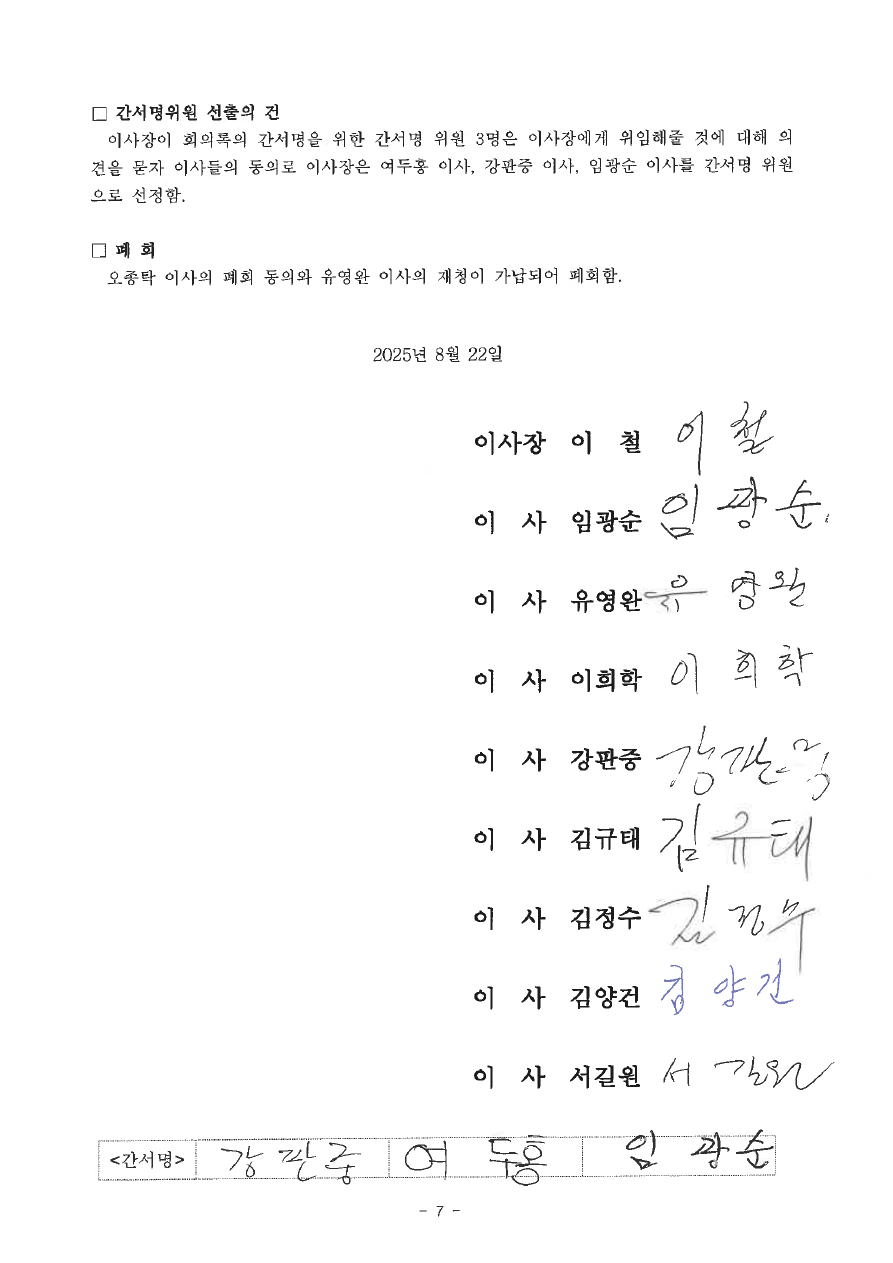 □ 간서명위원 선출의 건
이사장이 회의록의 간서명을 위한 간서명 위원 3명은 이사장에게 위임해줄 것에 대해 의
견을 묻자 이사들의 동의로 이사장은 여두홍 이사, 강판중 이사, 임광순 이사를 간서명 위원
으로 선정함.
□ 폐 회
오종탁 이사의 폐회 동의와 유영완 이사의 재청이 가납되어 폐회함.
2025년 8월 22일
이사장 이 철 이 철
이 사 임광순 임 광 순
이 사 유영완 유 영완
이 사 이희학 이 희 학
이 사 강판중 강판중
이 사 김규태 김 규태
이 사 김정수 김 정수
이 사 김양건 김 양 건
이 사 서길원 서 길원
<간서명> 강 판 중 여 두홍 임 광 순
- 7 -